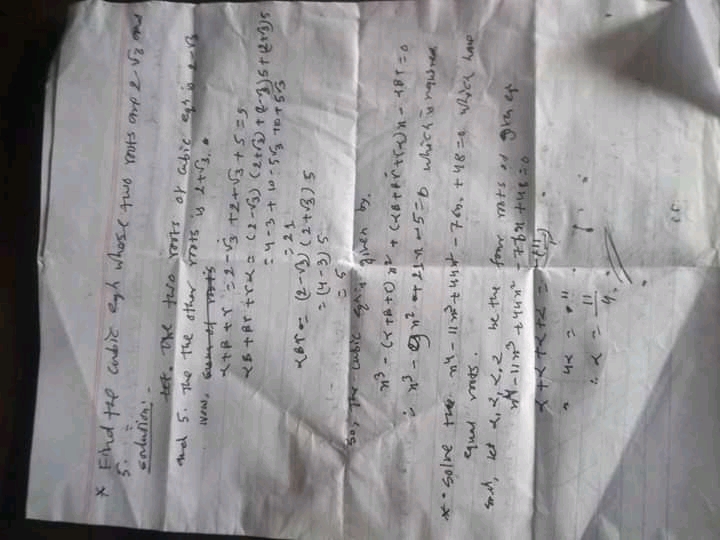 * Find the cubic eqn whose two roots are 2-√3 and
5.
Solution:-
Let. The two roots of cubic eqn is 2-√3
and 5. The the other roots is 2+√3.
Now, sum of roots
α+β+r = 2-√3 +2+√3 +5 = 9
αβ+βr+rα = (2-√3) (2+√3) + (2-√3)5 + (2+√3)5
= 4-3 + 10-5√3 +10+5√3
= 21
αβr = (2-√3) (2+√3) 5
= (4-3) 5
= 5
So, The cubic eqn given by.
x³ - (α+β+r) x² + (αβ+βr+rα)x - αβr = 0
∴ x³ - 9x² + 21x - 5 = 0 which is required
* Solve the x⁴ - 11x³ + 44x² - 76x + 48 = 0 which have
equal roots.
Soln, let α, α, α, α be the four roots of given eqn
x⁴ - 11x³ + 44x² - 76x + 48 = 0
α + α + α + α =
= 4α = 11
∴ α = 11/4